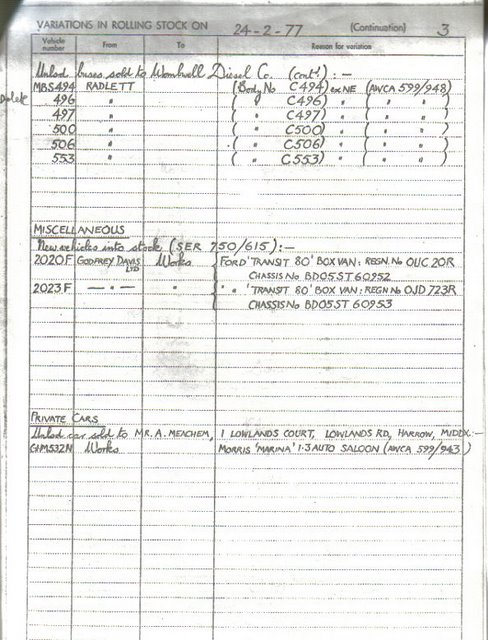 VARIATIONS IN ROLLING STOCK ON 24-2-77 (Continuation) 3
Vehicle number From To Reason for variation
Unlsd. buses sold to Wombwell Diesel Co. (cont'd.) :-
MBS494 RADLETT (Body No C494) ex NE (AWCA 599/948)
Delete 496 " ( " C496) " ( " " )
497 " ( " C497) " ( " " )
500 " ( " C500) " ( " " )
506 " ( " C506) " ( " " )
553 " ( " C553) " ( " " )
MISCELLANEOUS
New vehicles into stock (SER 750/615):-
2020F GODFREY DAVIS LTD Works FORD 'TRANSIT 80' BOX VAN: REGN. No OUC 20R
CHASSIS No BD05ST 60952
2023F — " — " " " 'TRANSIT 80' BOX VAN: REGN No OJD 723R
CHASSIS No BD05ST 60953
PRIVATE CARS
Unlsd car sold to MR. A. MEACHEM, 1 LOWLANDS COURT, LOWLANDS RD, HARROW, MIDDX:-
GHM532N Works MORRIS 'MARINA' 1·3 AUTO SALOON (AWCA 599/943)